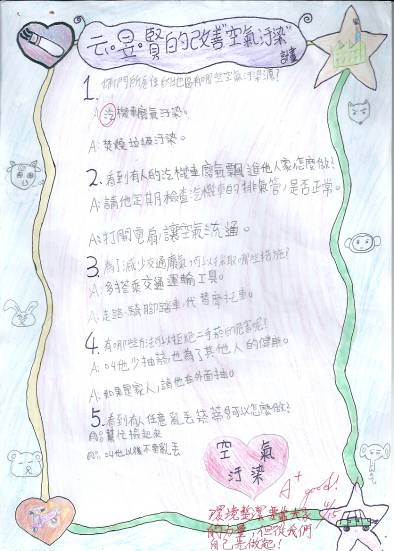 云。昱。賢的改善"空氣汙染"
計畫
1. 你們所居住的地區有哪些空氣汙染源?
A: 汽機車廢氣汙染。
A: 焚燒垃圾汙染。
2. 看到有人的汽機車廢氣飄進他人家怎麼做?
A: 請他定期檢查汽機車的排氣管,是否正常。
A: 打開電扇,讓空氣流通。
3. 為了減少交通廢氣可以採取哪些措施?
A: 多搭乘交通運輸工具。
A: 走路、騎腳踏車,代替摩托車。
4. 有哪些方法可以拒絕二手菸的危害呢?
A: 叫他少抽菸也為了其他人的健康。
A: 如果是家人,請他去外面抽。
5. 看到有人任意亂丟菸蒂可以怎麼做?
A: 幫忙撿起來
A: 叫他以後不要亂丟
空氣
汙染
A+ good!
環境整潔靠大家
的力量,但從我們
自己先做起!